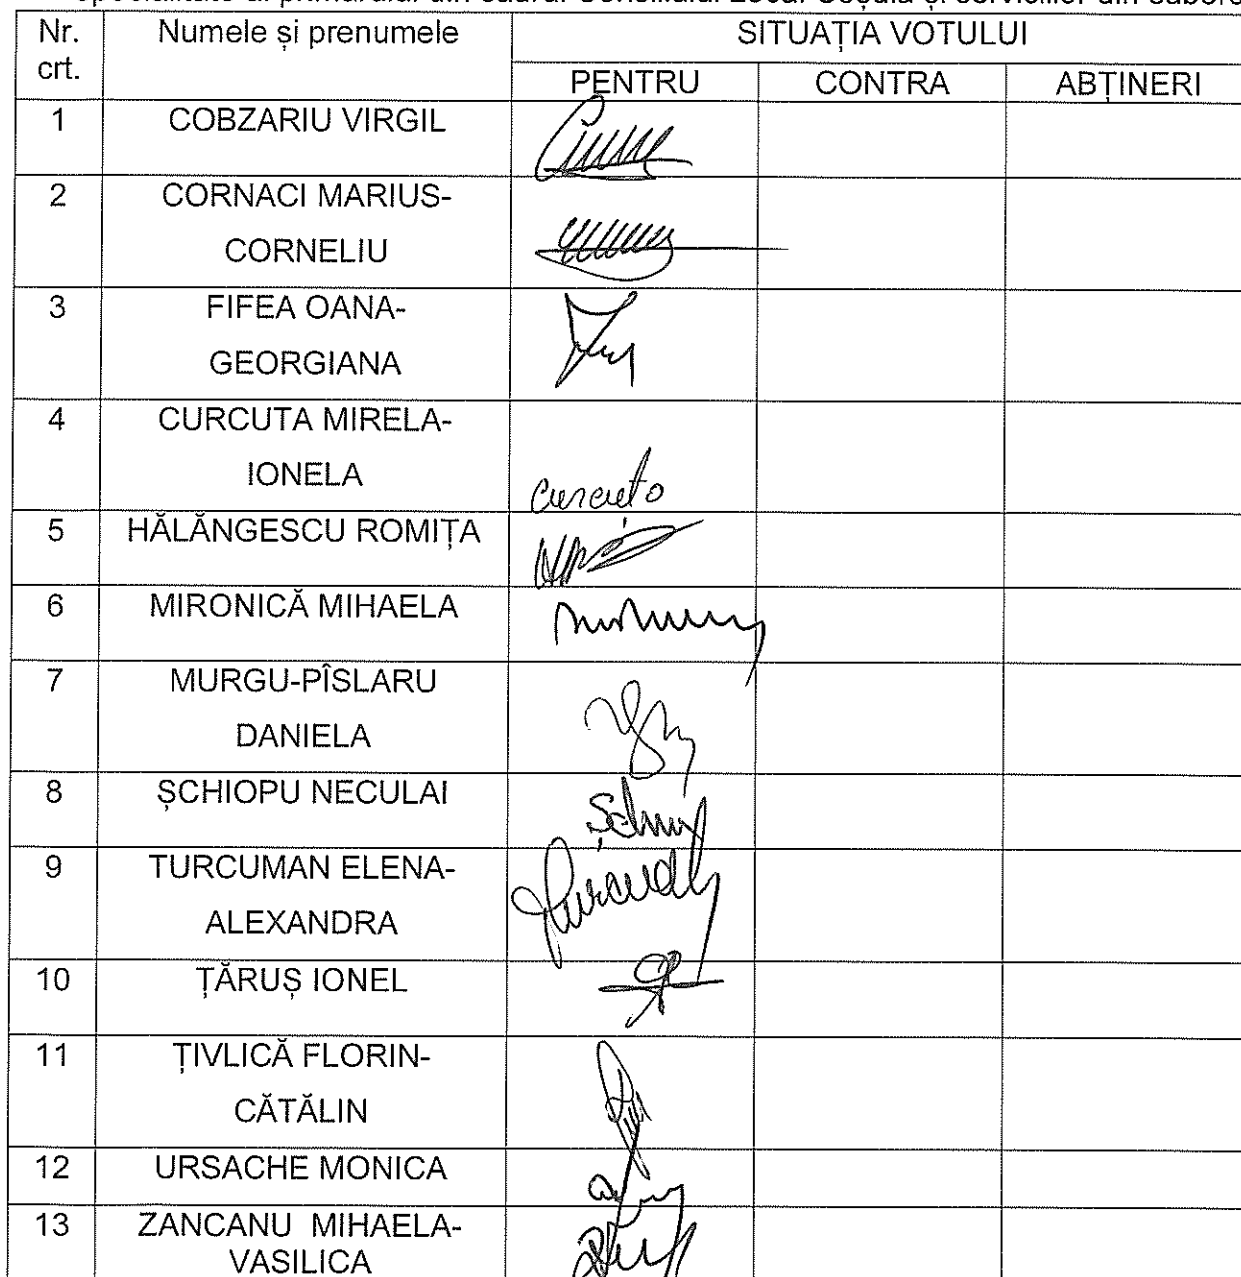 specialitate al primarului din cadrul Consiliului Local Coșula și serviciilor din subor
Nr. crt. Numele și prenumele SITUAȚIA VOTULUI
PENTRU CONTRA ABȚINERI
1 COBZARIU VIRGIL
2 CORNACI MARIUS-
CORNELIU
3 FIFEA OANA-
GEORGIANA
4 CURCUTA MIRELA-
IONELA
Curcuta
5 HĂLĂNGESCU ROMIȚA
6 MIRONICĂ MIHAELA
7 MURGU-PÎSLARU
DANIELA
8 ȘCHIOPU NECULAI
9 TURCUMAN ELENA-
ALEXANDRA
10 ȚĂRUȘ IONEL
11 ȚIVLICĂ FLORIN-
CĂTĂLIN
12 URSACHE MONICA
13 ZANCANU MIHAELA-
VASILICA